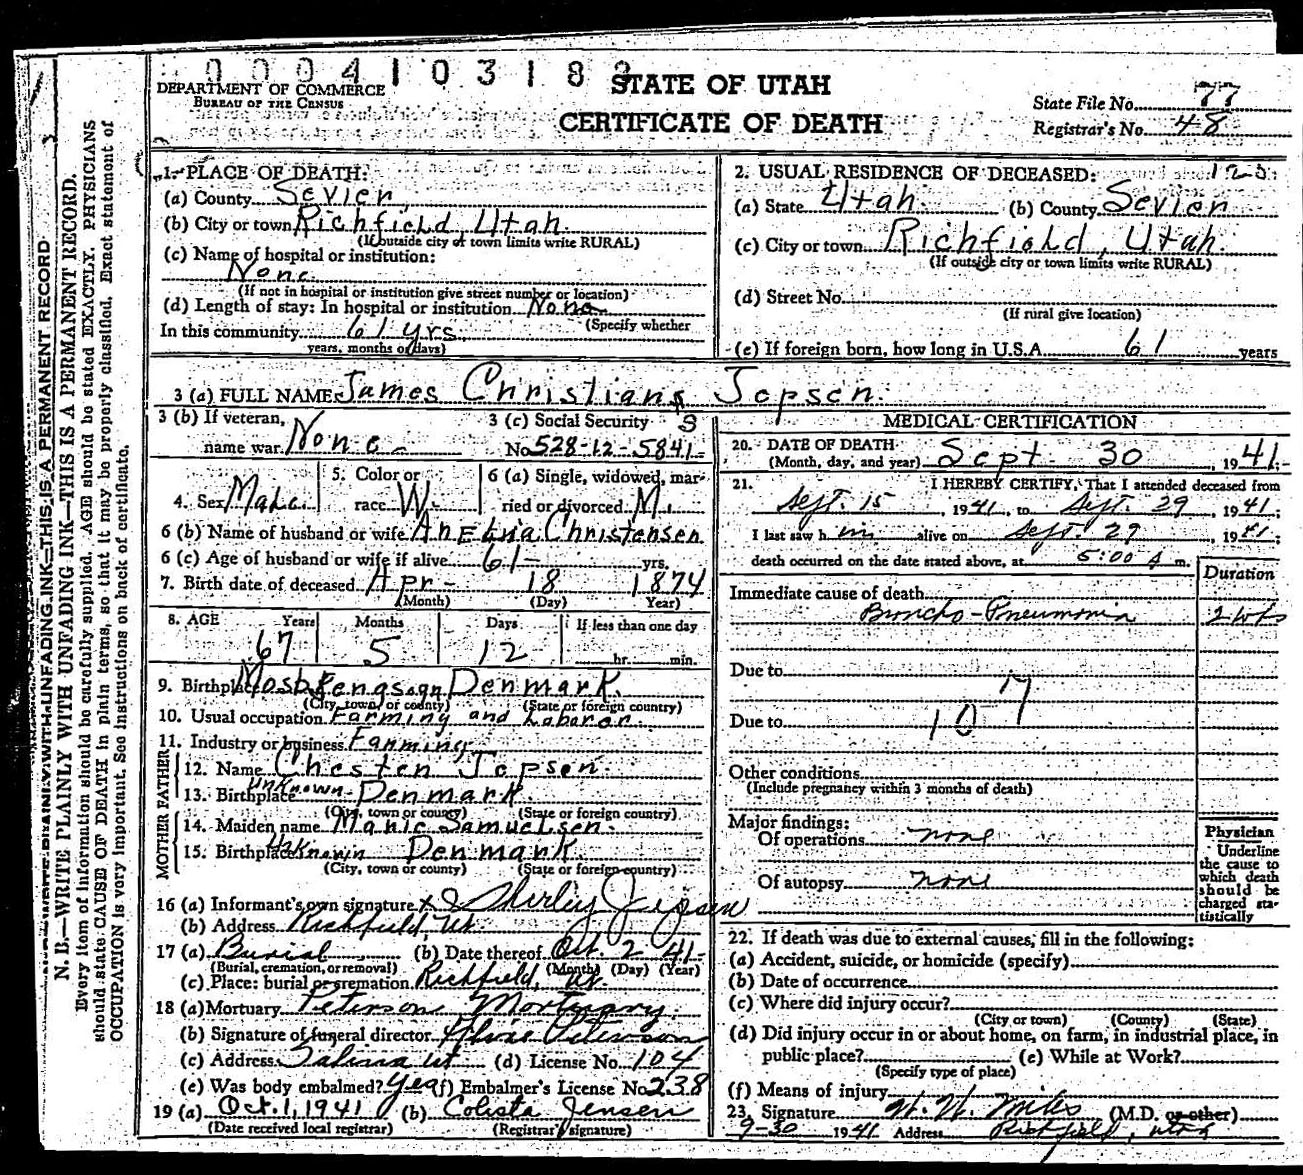 0 0 0 4 1 0 3 1 8
DEPARTMENT OF COMMERCE
BUREAU OF THE CENSUS
STATE OF UTAH
CERTIFICATE OF DEATH
State File No. 77
Registrar's No. 48
1. PLACE OF DEATH:
(a) County Sevier
(b) City or town Richfield, Utah.
(If outside city or town limits write RURAL)
(c) Name of hospital or institution:
None
(If not in hospital or institution give street number or location)
(d) Length of stay: In hospital or institution None
(Specify whether
In this community 61 yrs.
years, months or days)
2. USUAL RESIDENCE OF DECEASED:
(a) State Utah (b) County Sevier
(c) City or town Richfield, Utah.
(If outside city or town limits write RURAL)
(d) Street No.
(If rural give location)
(e) If foreign born, how long in U.S.A. 61 years
3 (a) FULL NAME James Christians Jepsen.
3 (b) If veteran,
name war None
3 (c) Social Security
No. 528-12-5841
4. Sex Male
5. Color or
race W.
6 (a) Single, widowed, mar-
ried or divorced M.
6 (b) Name of husband or wife Christensen
6 (c) Age of husband or wife if alive 61 yrs.
7. Birth date of deceased Apr- 18 1874
(Month) (Day) Year)
8. AGE Years Months Days If less than one day
67 5 12 hr. min.
9. Birthplace Denmark.
(City, town, or county) (State or foreign country)
10. Usual occupation Farming and Laborer.
11. Industry or business Farming
FATHER
12. Name Chesten Jepsen.
13. Birthplace Unknown Denmark
(City, town or county) (State or foreign country)
MOTHER
14. Maiden name Marie Samuelsen.
15. Birthplace Unknown Denmark
(City, town or county) (State or foreign country)
16 (a) Informant's own signature x Shirley Jepsen
(b) Address Richfield, Ut.
17 (a) Burial (b) Date thereof Oct. 2 41
(Burial, cremation, or removal) (Month) (Day) (Year)
(c) Place: burial or cremation Richfield, Ut.
18 (a) Mortuary Peterson Mortuary.
(b) Signature of funeral director Peterson
(c) Address Salina Ut (d) License No. 104
(e) Was body embalmed? Yes (f) Embalmer's License No. 238
19 (a) Oct. 1, 1941 (b) Colista Jensen
(Date received local registrar) (Registrar's signature)
MEDICAL CERTIFICATION
20. DATE OF DEATH
(Month, day, and year) Sept 30, 1941
21. I HEREBY CERTIFY, That I attended deceased from
Sept. 15, 1941, to Sept. 29, 1941;
I last saw h im alive on Sept. 29, 1941;
death occurred on the date stated above, at 5:00 A m.
Duration
Immediate cause of death
Broncho-Pneumonia 2 wks
Due to
17
Due to
107
Other conditions
(Include pregnancy within 3 months of death)
Major findings:
Of operations none
Of autopsy none
Physician
Underline
the cause to
which death
should be
charged sta-
tistically
22. If death was due to external causes, fill in the following:
(a) Accident, suicide, or homicide (specify)
(b) Date of occurrence
(c) Where did injury occur?
(City or town) (County) (State)
(d) Did injury occur in or about home, on farm, in industrial place, in
public place? (e) While at Work?
(Specify type of place)
(f) Means of injury
23. Signature (M.D. or other)
9-30 1941 Address Richfield, Utah
N. B.—WRITE PLAINLY WITH UNFADING INK—THIS IS A PERMANENT RECORD.
Every item of information should be carefully supplied. AGE should be stated EXACTLY. PHYSICIANS
should state CAUSE OF DEATH in plain terms, so that it may be properly classified. Exact statement of
OCCUPATION is very important. See instructions on back of certificate.